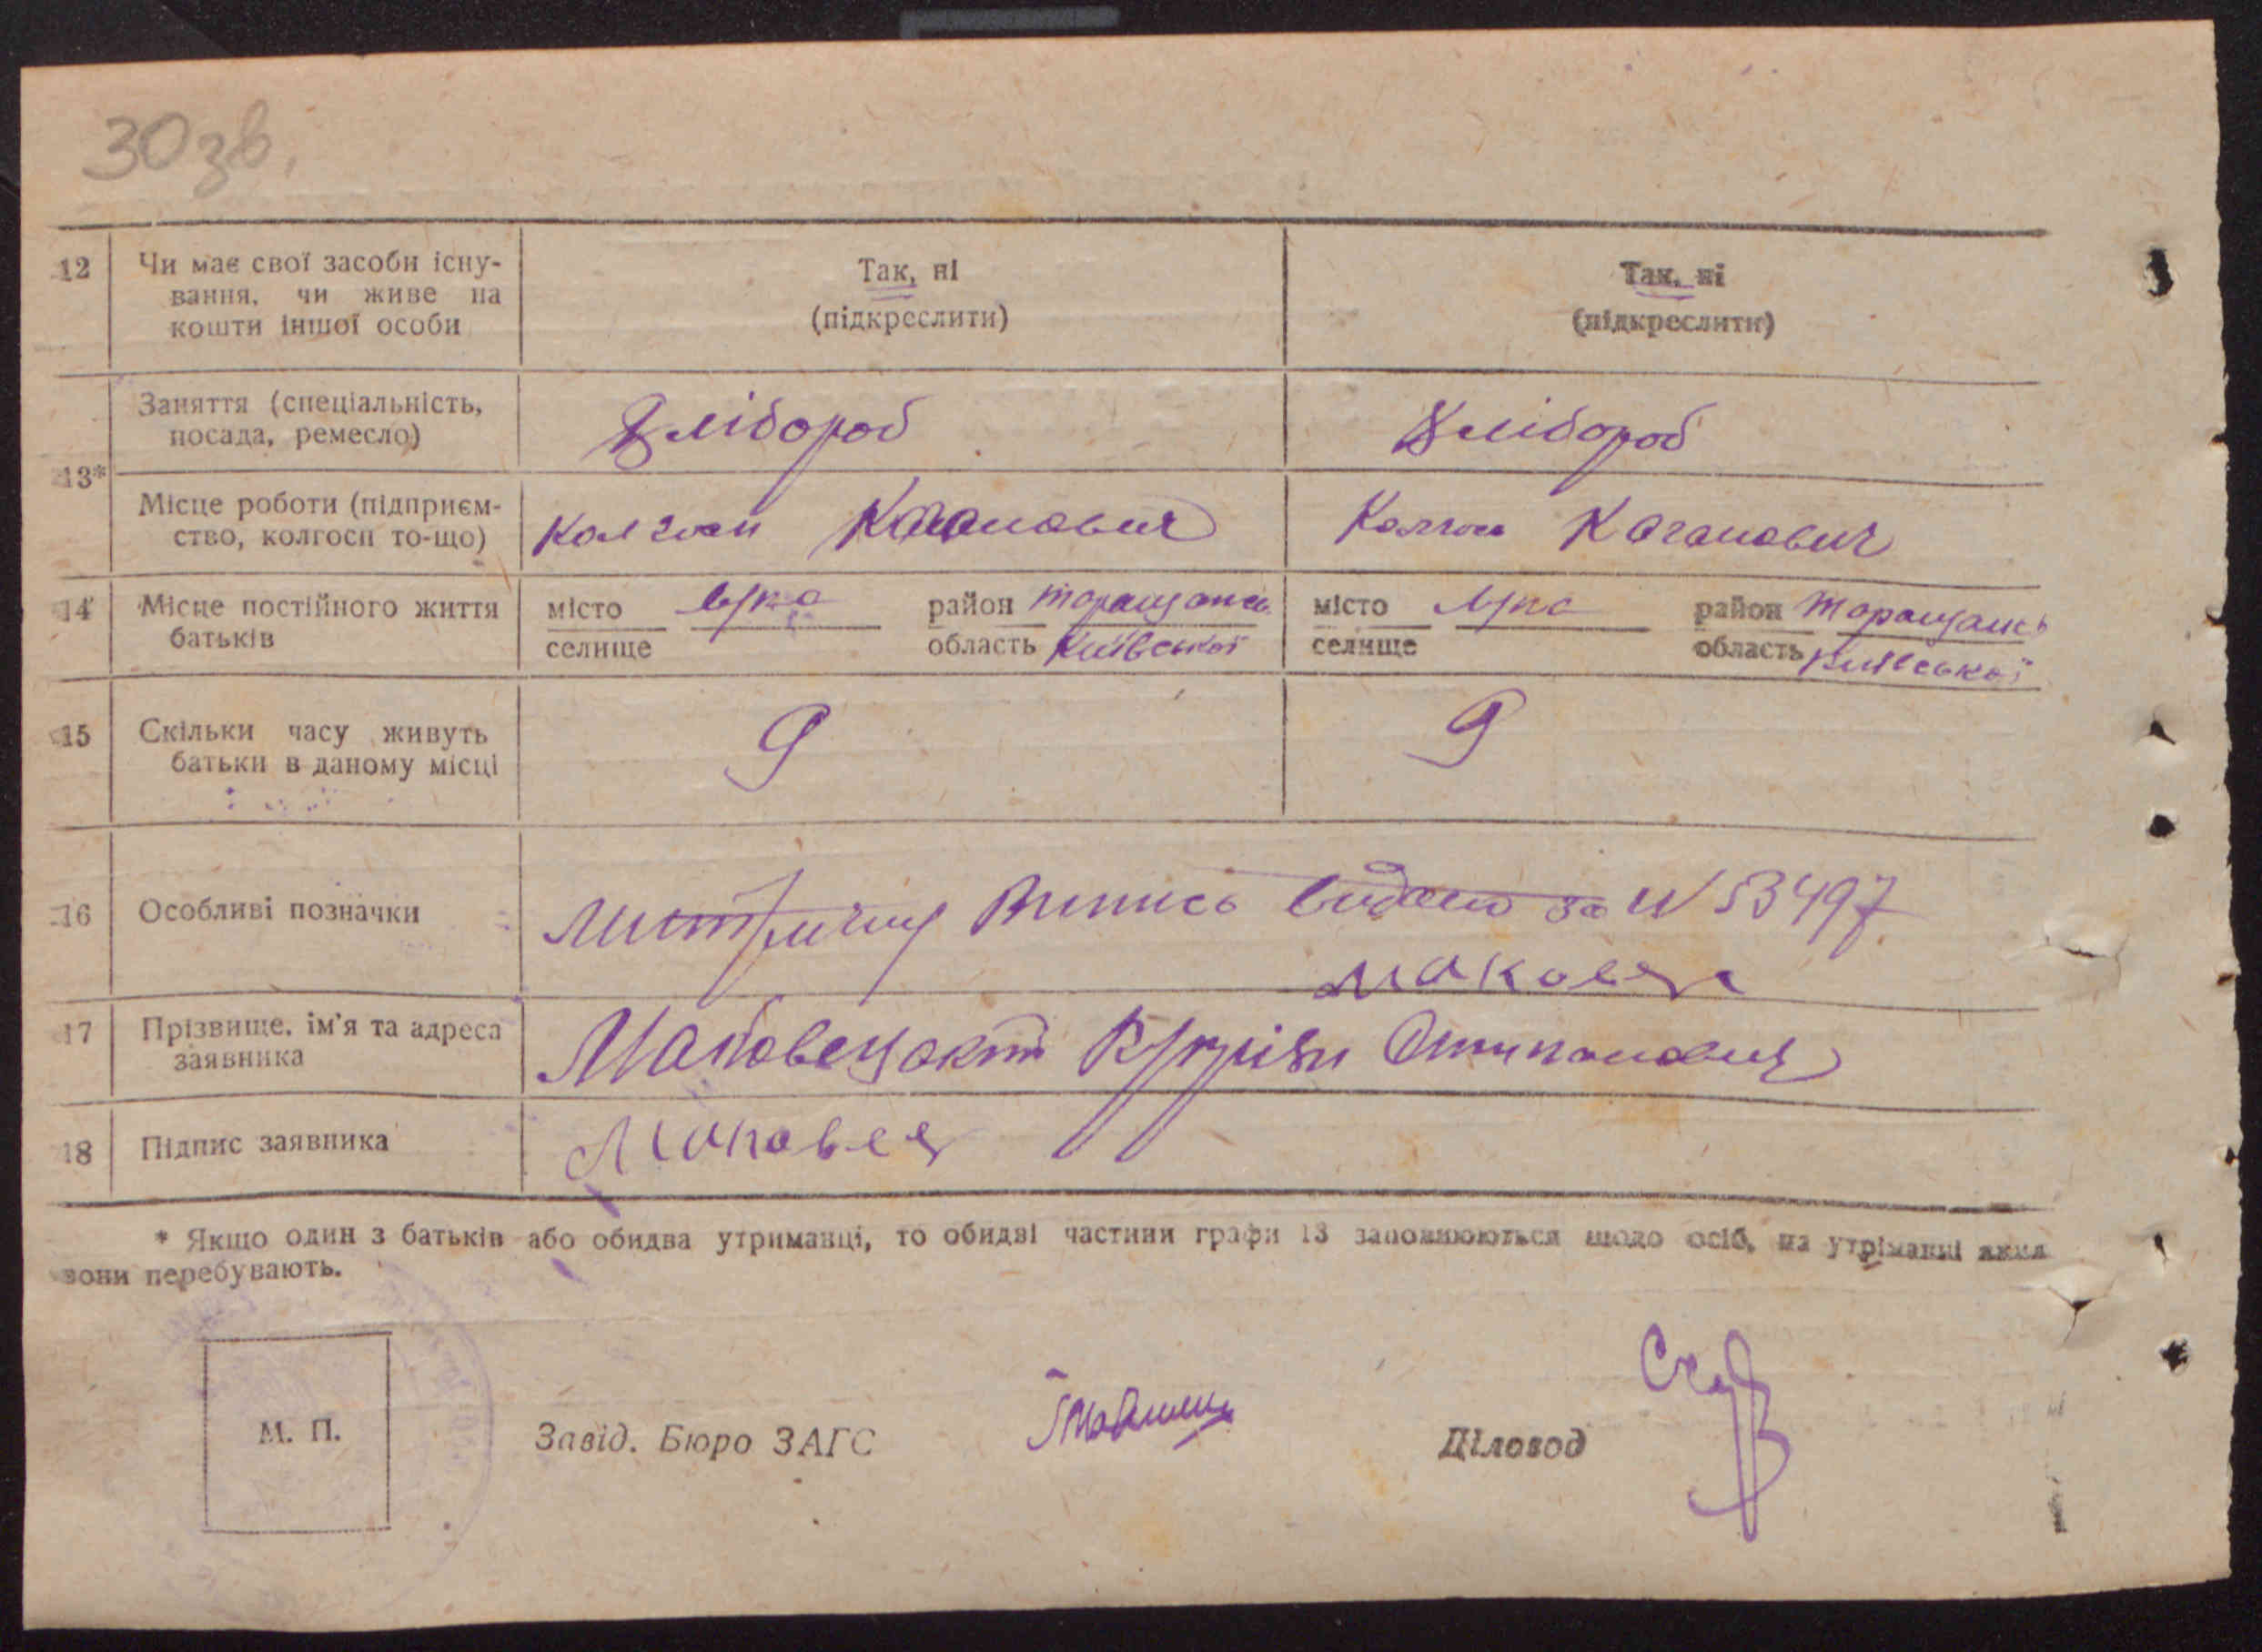 30 зв.
12 Чи має свої засоби існу-
вання, чи живе на
кошти іншої особи
Так, ні
(підкреслити)
Так, ні
(підкреслити)
13*
Заняття (спеціальність,
посада, ремесло)
Хлібороб
Хлібороб
Місце роботи (підприєм-
ство, колгосп то-що)
Колгосп Каганович
Колгосп Каганович
14 Місце постійного життя
батьків
місто
селище
район Таращансь
область Київської
місто
селище
район Таращансь
область Київської
15 Скільки часу живуть
батьки в даному місці
9
9
16 Особливі позначки
Випись видано за N 53497
Маковец
17 Прізвище, ім'я та адреса
заявника
18 Підпис заявника
Маковец
* Якщо один з батьків або обидва утриманці, то обидві частини графи 13 заповнюються щодо осіб, на утріманні яких
вони перебувають.
М. П.
Завід. Бюро ЗАГС
Діловод